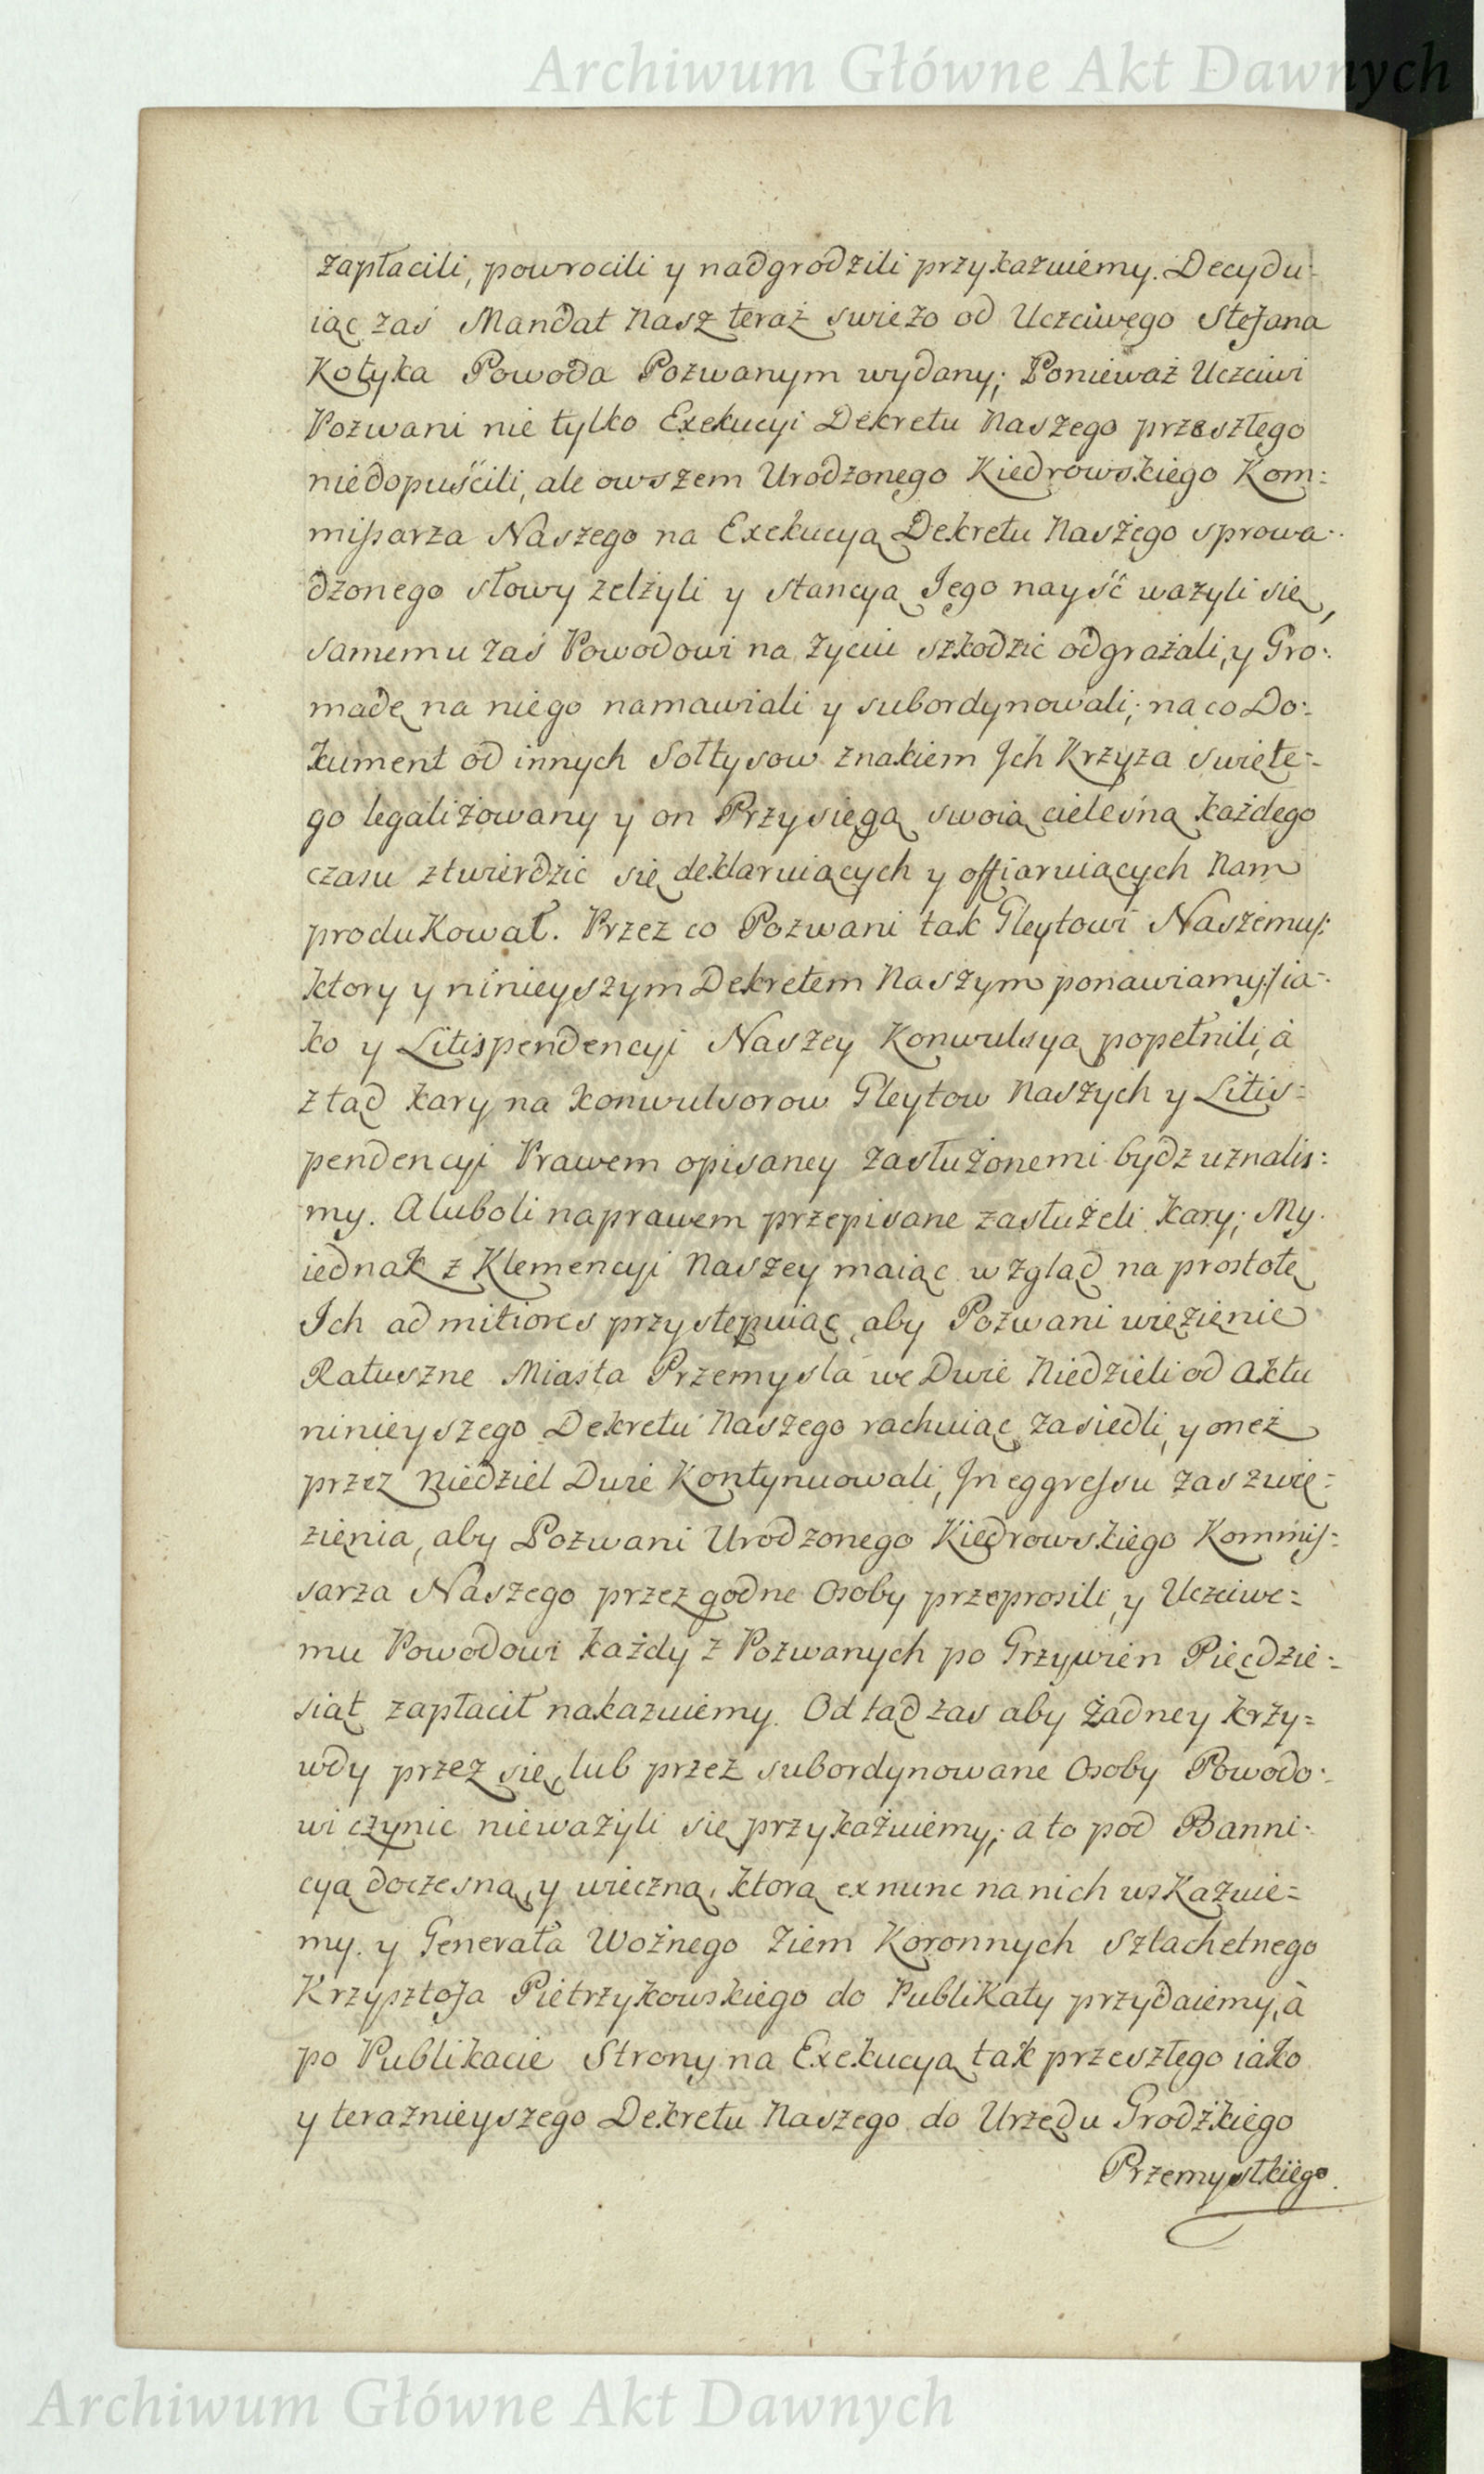 Archiwum Główne Akt Dawnych
zapłacili, powrocili y nadgrodzili przykazuiemy. Decydu-
iąc zaś Mandat Nasz teraz swieżo od Uczciwego Stefana
Kotyka Powoda Pozwanym wydany; Ponieważ Uczciwi
Pozwani nie tylko Exekucyi Dekretu Naszego przeszłego
niedopuścili, ale owszem Urodzonego Kiedrowskiego Kom:
missarza Naszego na Exekucyą Dekretu Naszego sprowa-
dzonego słowy zelżyli y stancyą Jego nayść ważyli się,
samemu zaś Powodowi na życiu szkodzić odgrażali, y Gro-
madę na niego namawiali y subordynowali; na co Do-
kument od innych Sołtysow znakiem Ich Krzyża swięte-
go legalizowany y on Przysięgą swoią cielesną każdego
czasu ztwierdzić się deklaruiących y offiaruiących Nam
produkował. Przez co Pozwani tak Gleytowi Naszemu/:
ktory y ninieyszym Dekretem Naszym ponawiamy:/ia-
ko y Litispendencyi Naszey Konwulsyą popełnili, à
ztąd kary na konwulsorow Gleytow Naszych y Litis=
pendencyi Prawem opisaney zasłużonemi bydz uznalis:
my. A luboli na prawem przepisane zasłużeli kary; My
iednak z Klemencyi Naszey maiąc wzgląd na prostotę
Ich ad mitiores przystępuiąc, aby Pozwani więzienie
Ratuszne Miasta Przemysla we Dwie Niedzieli od Aktu
ninieyszego Dekretu Naszego rachuiąc zasiedli, y oneż
przez Niedziel Dwie Kontynuowali, In eggressu zas z wię=
zienia, aby Pozwani Urodzonego Kiedrowskiego Kommis=
sarza Naszego przez godne Osoby przeprosili, y Uczciwe=
mu Powodowi każdy z Pozwanych po Grzywien Pięcdzie=
siąt zapłacił nakazuiemy. Odtąd zas aby żadney krzy=
wdy przez się, lub przez subordynowane Osoby Powodo-
wi czynic nieważyli się przykazuiemy; a to pod Banni-
cyą doczesną, y wieczną, ktorą ex nunc na nich wskazuie=
my. y Generała Woźnego Ziem Koronnych Szlachetnego
Krzysztofa Pietrzykowskiego do Publikaty przydaiemy, à
po Publikacie Strony na Exekucyą tak przeszłego iako
y teraznieyszego Dekretu Naszego do Urzędu Grodzkiego
Przemyslkiego.
Archiwum Główne Akt Dawnych